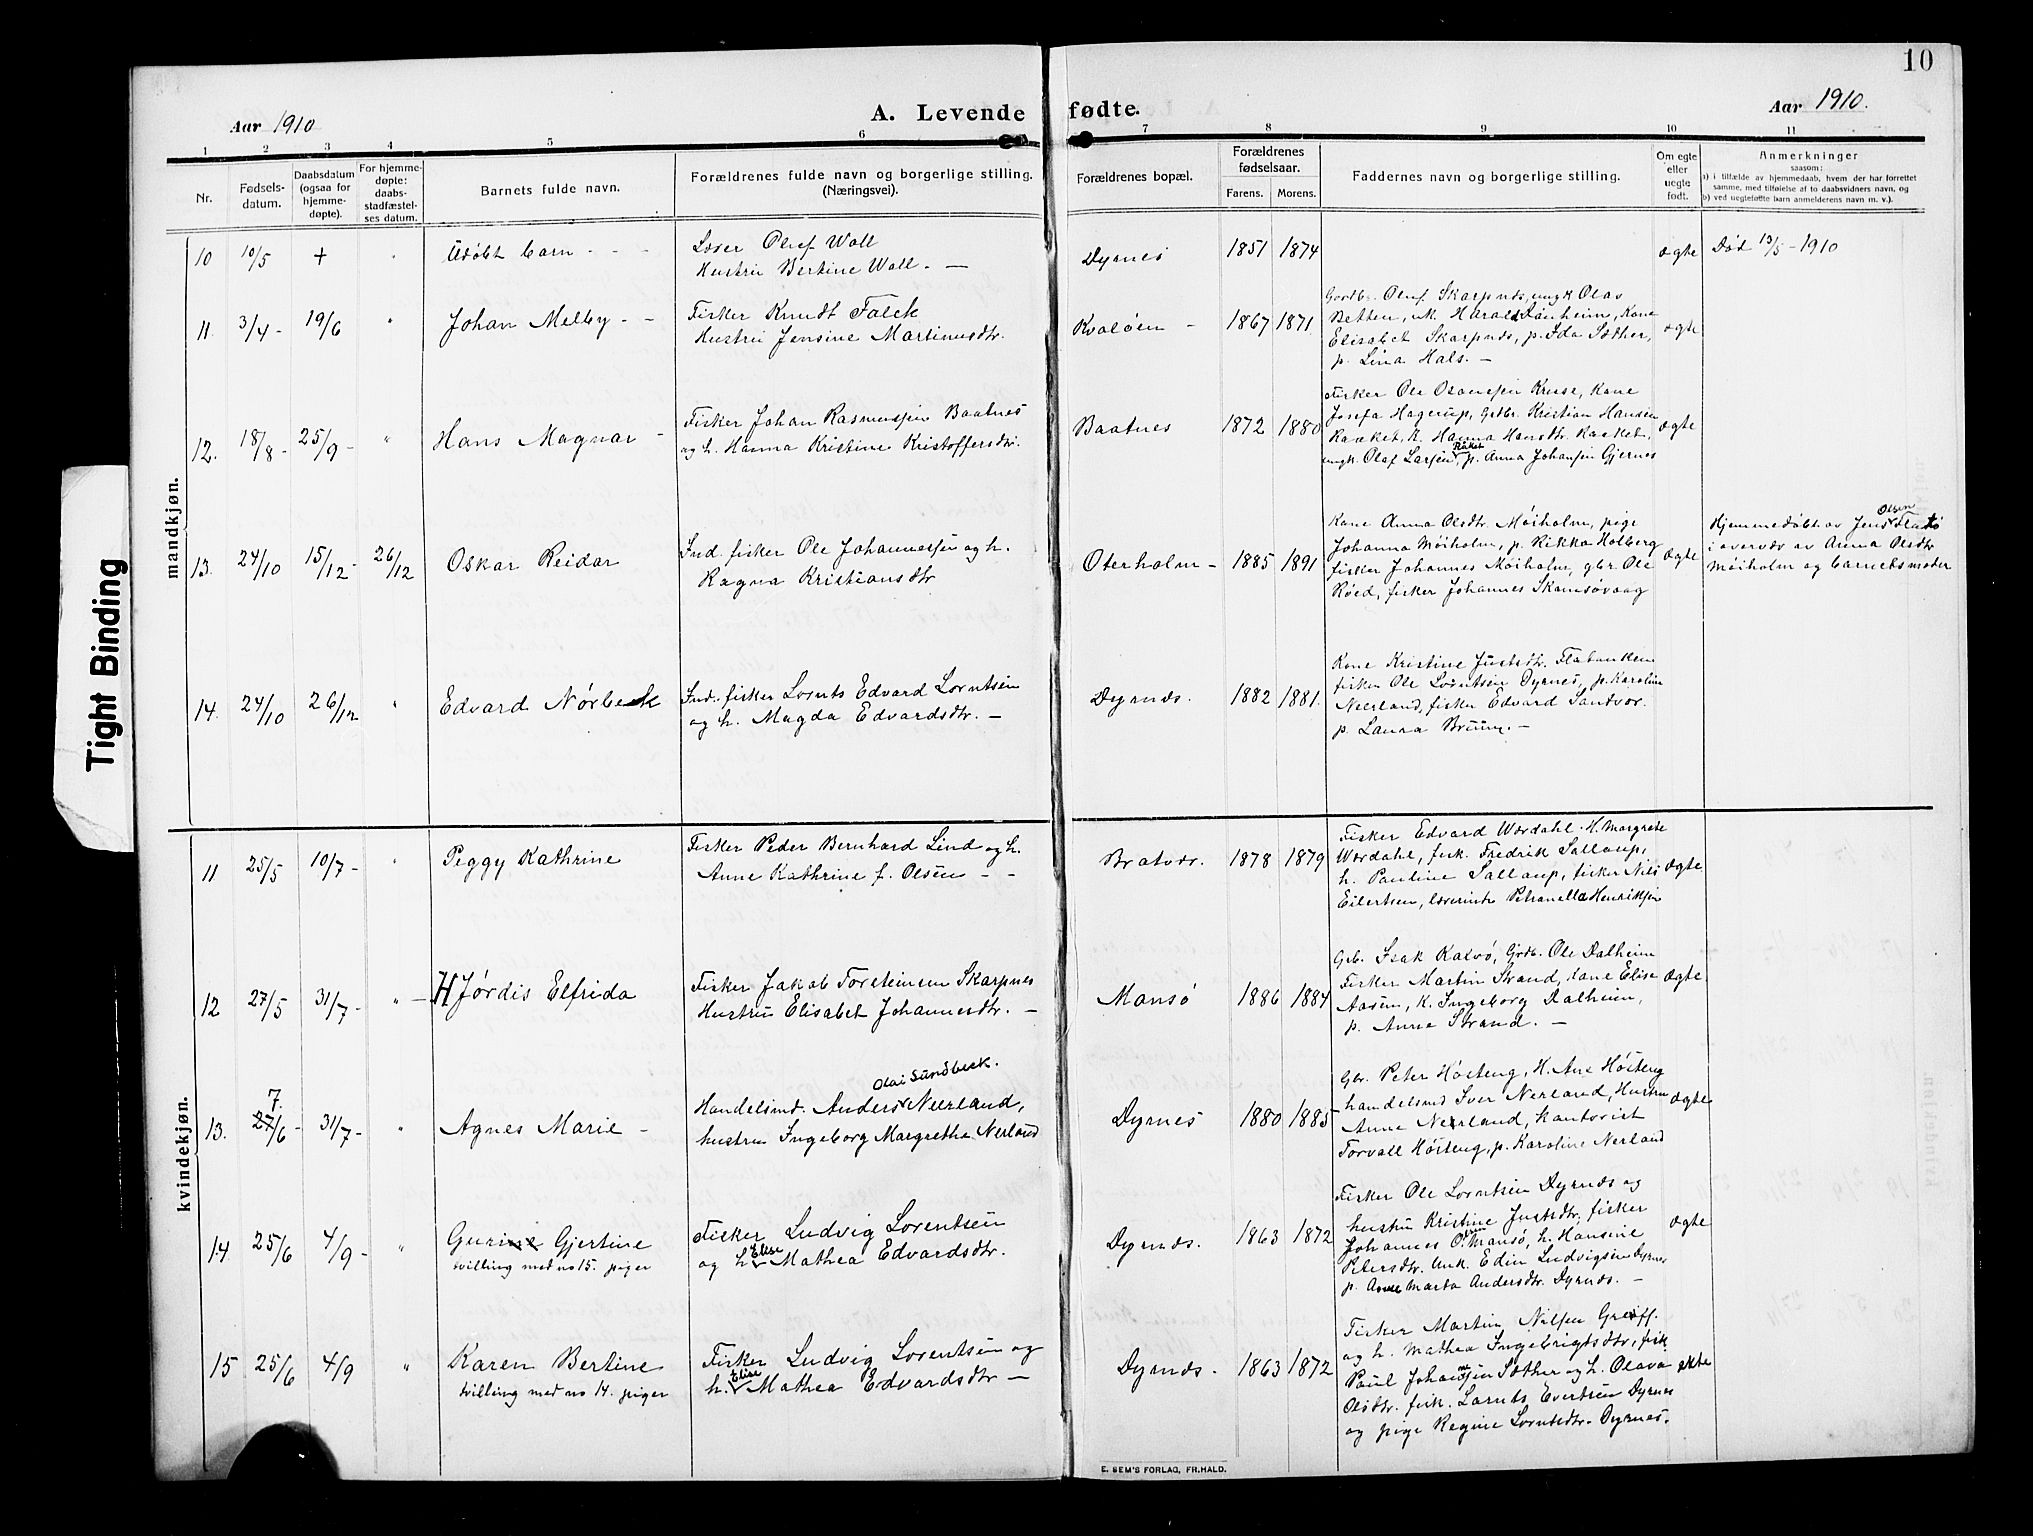 10
Aar 1910
A. Levende fødte.
Aar 1910.
1 2 3 4 5 6 7 8 9 10 11
Nr.
Fødsels-
datum.
Daabsdatum
(ogsaa for
hjemme-
døpte).
For hjemme-
døpte:
daabs-
stadfæstel-
ses datum.
Barnets fulde navn.
Forældrenes fulde navn og borgerlige stilling.
(Næringsvei).
Forældrenes bopæl.
Forældrenes
fødselsaar.
Farens. Morens.
Faddernes navn og borgerlige stilling.
Om egte
eller
uegte
født.
Anmerkninger
saasom:
a) i tilfælde av hjemmedaab, hvem der har forrettet
samme, med tilføielse af to daabsvidners navn, og
b) ved uegtefødte barn anmelderens navn m. v.).
mandkjøn.
10 10/5 + " Udøbt barn - - -
Loser Oluf Wall
Hustru Bertine Wall. —
Dyrnes 1851 1874
ægte
Død 13/5 - 1910
11. 3/4 - 19/6 " Johan Melby - -
Fisker Knudt Falck
Hustru Jensine Martinusdtr.
Kvaløen - 1867 1871
Gbr. Oluf Skarpnes, ungk Olav
Betten, uk Harald Dønheim, Kone
Elisabet Skarpnes, p. Ida Sæther,
p. Lina Hals. —
ægte
12. 18/8 - 25/9 - " Hans Magnar -
Fisker Johan Rasmussen Baatnes
og h. Hanna Kristine Kristoffersdtr.
Baatnes 1872 1880
Fisker Ole Krisse, Kone
Josefa Hagerup, Grbr. Kristian Hansen
Raaket, K. Hanna Hansdtr. Raaket,
ungk. Olaf Larsen Råket, p. Anna Johansen Gjernes
ægte
13. 24/10 15/12 - 26/12 Oskar Reidar
Ind. fisker Ole Johannessen og h.
Ragna Kristiansdtr
Oterholm - 1885 1891
Kone Anna Olsdtr. Møiholm, pige
Johanna Møiholm, p. Rikka Holberg
fisker Johannes Møiholm, gbr. Ole
Røed, fisker Johannes Skamsøvaag
ægte
Hjemmedøbt av Jens Olsen
i overvær av Anna Olsdtr
Møiholm og barnets moder
14. 24/10 26/12 " Edvard Nørbeck
Ind. fisker Lornts Edvard Lorntsen
og h. Magda Edvardsdtr. —
Dyrnes. 1882 1881.
Kone Kristine Justsdtr. Fløbakken
fisker Ole Lorntsen Dyrnes, p. Karoline
Neerland, fisker Edvard Sandvor.
p. Laura Bruun. —
kvindekjøn.
11 25/5 10/7 - " Peggy Kathrine
Fisker Peder Bernhard Lind og h.
Anne Kathrine f. Olsen - -
Bratvær. 1878 1879
Fisker Edvard Wærdahl. H. Margrete
Wærdahl, fisk. Fredrik Sallaup,
h. Pauline Sallaup, fisker Nils
Eilertsen, lærerinde Petronella Henriksen
ægte
12 27/5 31/7 - " - Hjørdis Elfrida
Fisker Jakob Torsteinsen Skarpnes
Hustru Elisabet Johannesdtr. —
Mansø 1886 1884
Gbr. Isak Kalvø, Grdb. Ole Dalheim
Fisker Martin Strand, kone Elise
Aasen, K. Ingeborg Dalheim,
p. Anne Strand. —
ægte
13. 27/6 7. - 31/7 - " Agnes Marie -
Handelsmd. Anders Olai Sundbeck. Neerland,
hustru Ingeborg Margretha Nerland
Dyrnes 1880 1885
Gbr. Peter Høsteng, H. Ane Høsteng
handelsmd Iver Nerland, Hustru
Anne Nerland, kantorist
Torvall Høsteng, p. Karoline Nerland
ægte
14 25/6 4/9 - " Gurine Gjertine
tvilling med no 15. piger
Fisker Ludvig Lorentsen
og h. Elise Mathea Edvardsdtr.
Dyrnes. 1863 1872
Fisker Ole Lorntsen Dyrnes og
hustru Kristine Justsdtr, fisker
Johannes Olsen Mansø, h. Hansine
Petersdtr. Unk. Edin Ludvigsen Dyrnes
p. Anne Marta Andersdtr. Dyrnes. —
ægte
15 25/6 4/9 " Karen Bertine
tvilling med no 14. piger
Fisker Ludvig Lorentsen og
h. Elise Mathea Edvardsdtr —
Dyrnes. 1863 1872
Fisker Martin Nilsen Greiff.
og h. Mathea Ingebrigtsdtr, fisk
Paul Johansen Sæther og h. Olava
Olsdtr. fisk. Lornts Evertsen Dyrnes
og pige Regine Lorntsdtr. Dyrnes.
ekte
E. SEM'S FORLAG, FR.HALD.
Tight Binding